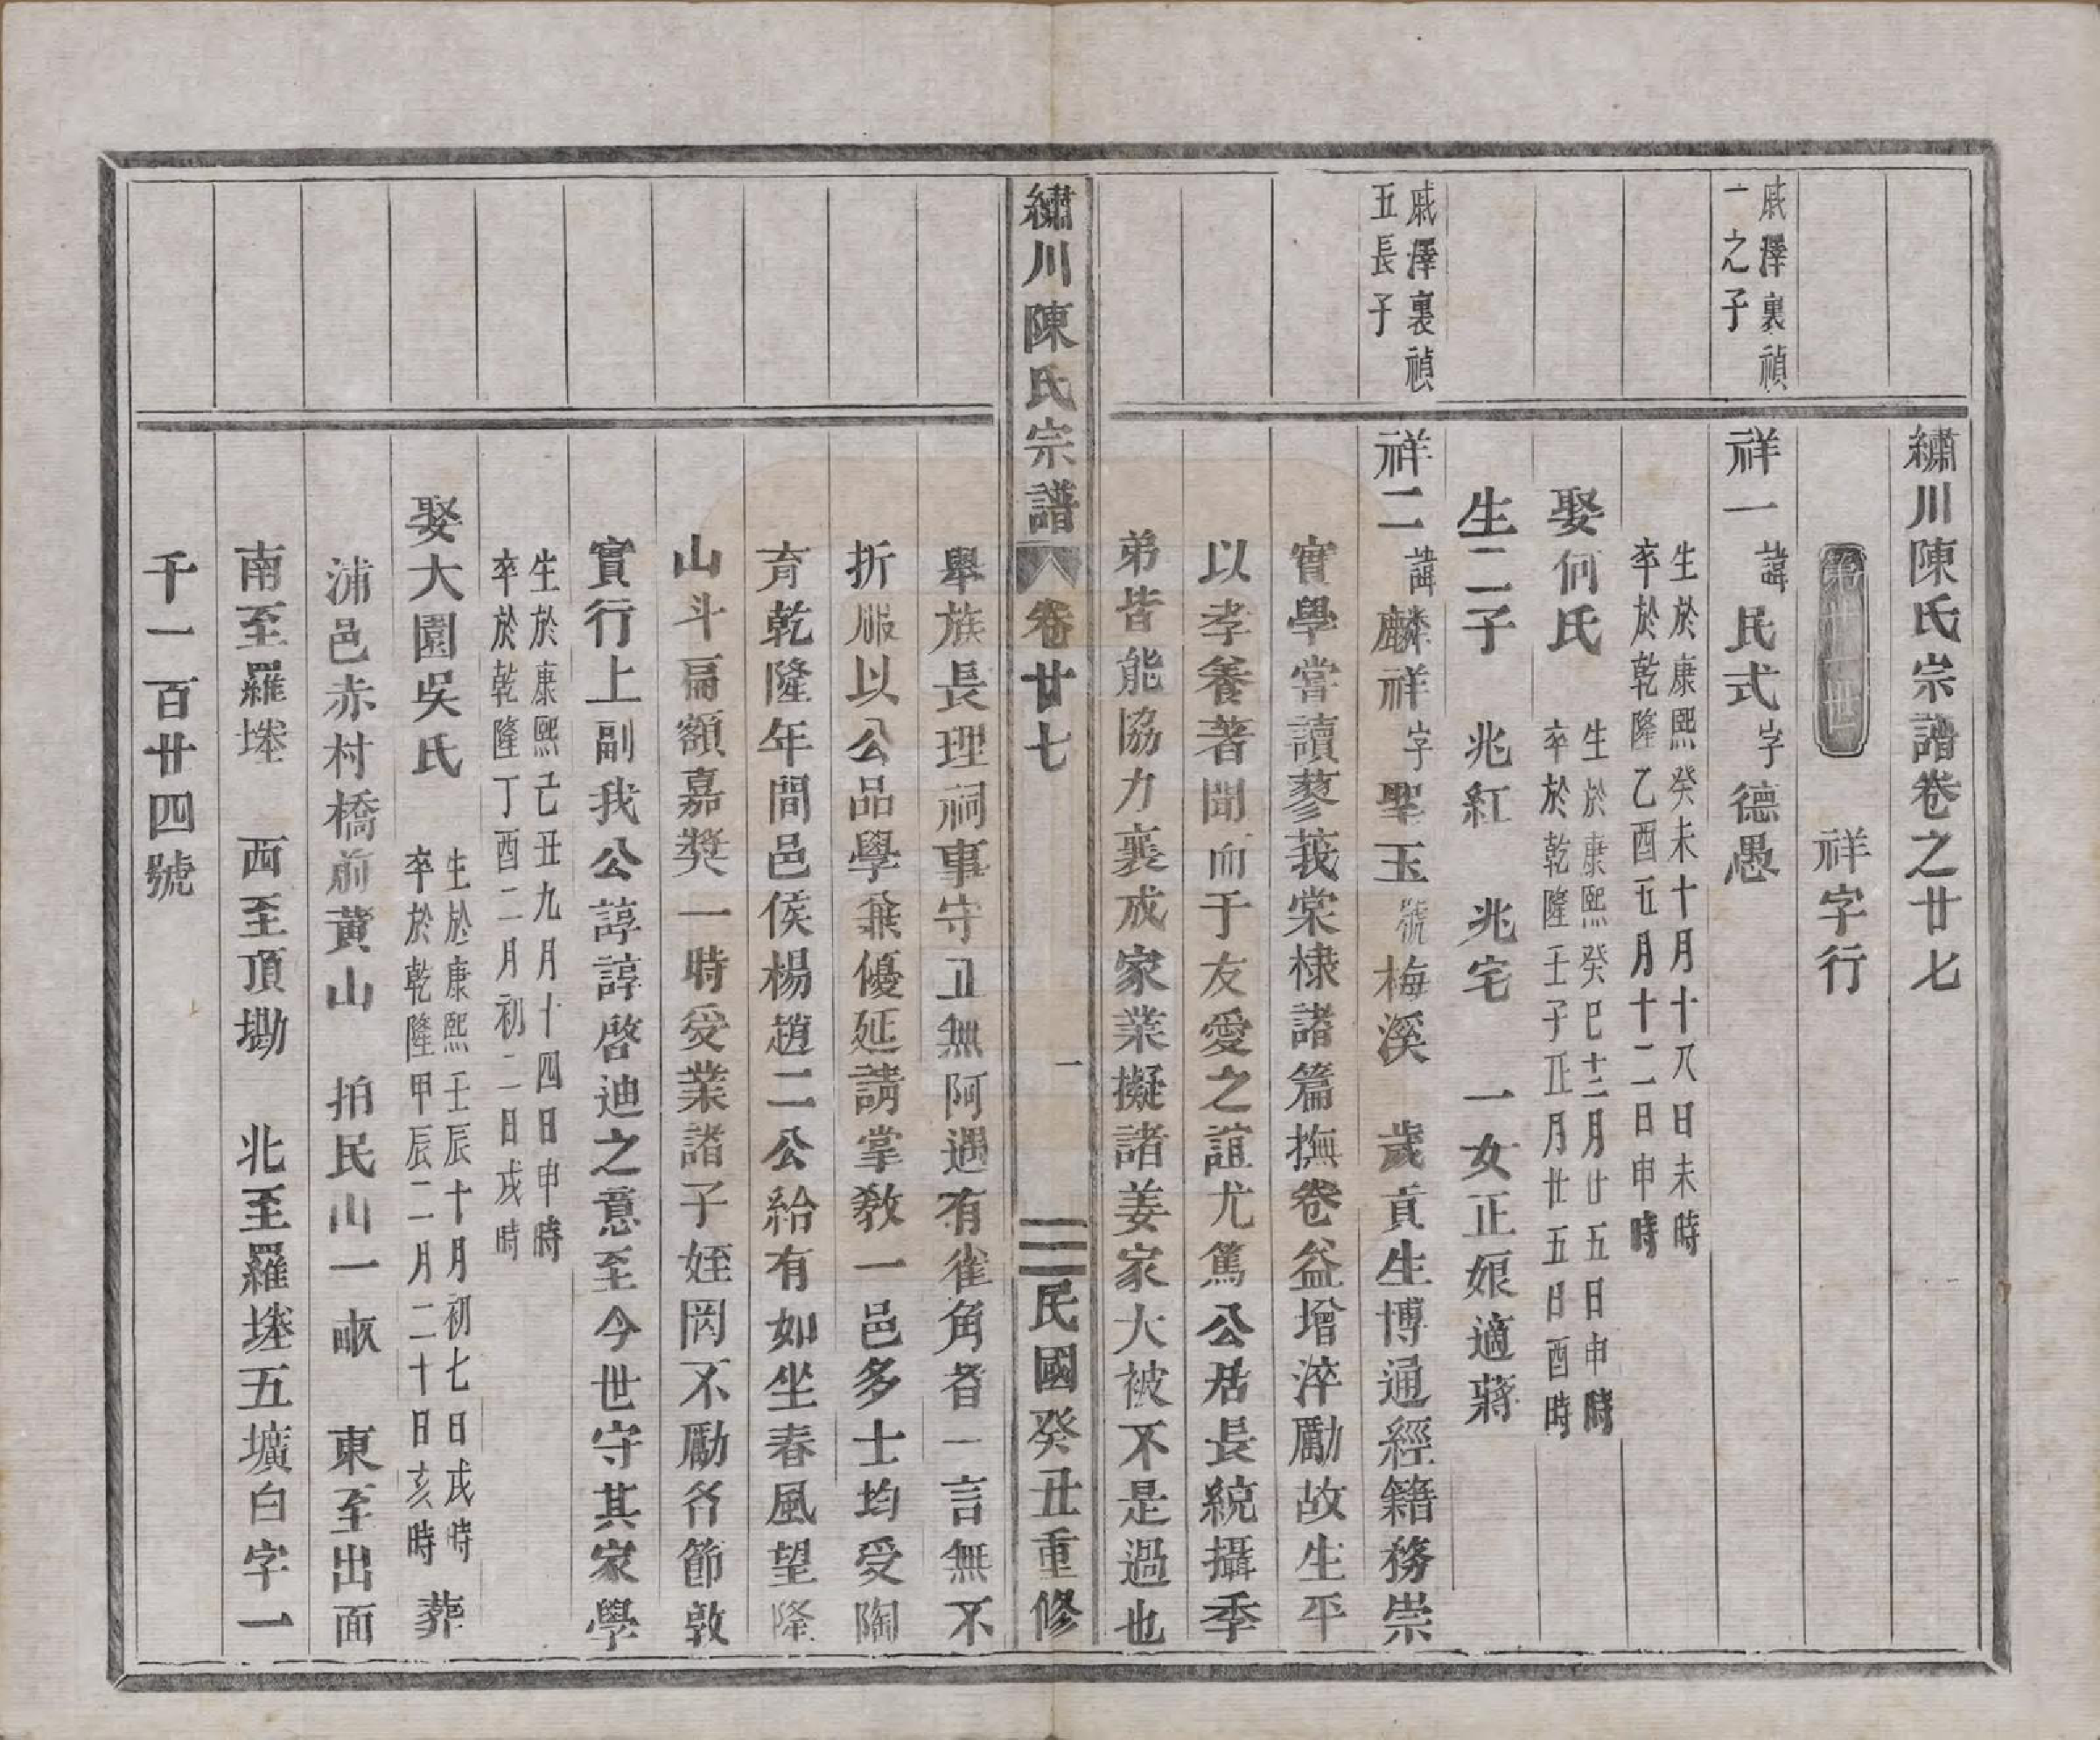 繡川陳氏宗譜卷之廿七
第廿一世　祥字行
戚澤裏禎
一之子
祥一諱民式字德愚
生於康熙癸未十月十八日未時
卒於乾隆乙酉五月十二日申時
娶何氏
生於康熙癸巳十二月廿五日申時
卒於乾隆壬子正月廿五日酉時
生二子　兆紅　兆宅　一女正娘適蔣
戚澤裏禎
五長子
祥二諱麟祥字聖玉號梅溪　歲貢生博通經籍務崇
實學當讀蓼莪棠棣諸篇撫卷益增淬勵故生平
以孝養著聞而于友愛之誼尤篤公居長統攝季
弟皆能協力襄成家業擬諸姜家大被不是過也
繡川陳氏宗譜　卷廿七　一　民國癸丑重修
舉族長理祠事守正無阿遇有雀角者一言無不
折服以公品學兼優延請掌教一邑多士均受陶
育乾隆年間邑侯楊趙二公給有如坐春風望隆
山斗扁額嘉獎一時受業諸子姪罔不勵名節敦
實行上副我公諄諄啓迪之意至今世守其家學
生於康熙己丑九月十四日申時
卒於乾隆丁酉二月初二日戌時
娶大園吳氏
生於康熙壬辰十月初七日戌時
卒於乾隆甲辰二月二十日亥時
葬
浦邑赤村橋前黃山　拍民山一畝　東至出面
南至羅塜　西至頂塮　北至羅塜五壙白字一
千一百廿四號